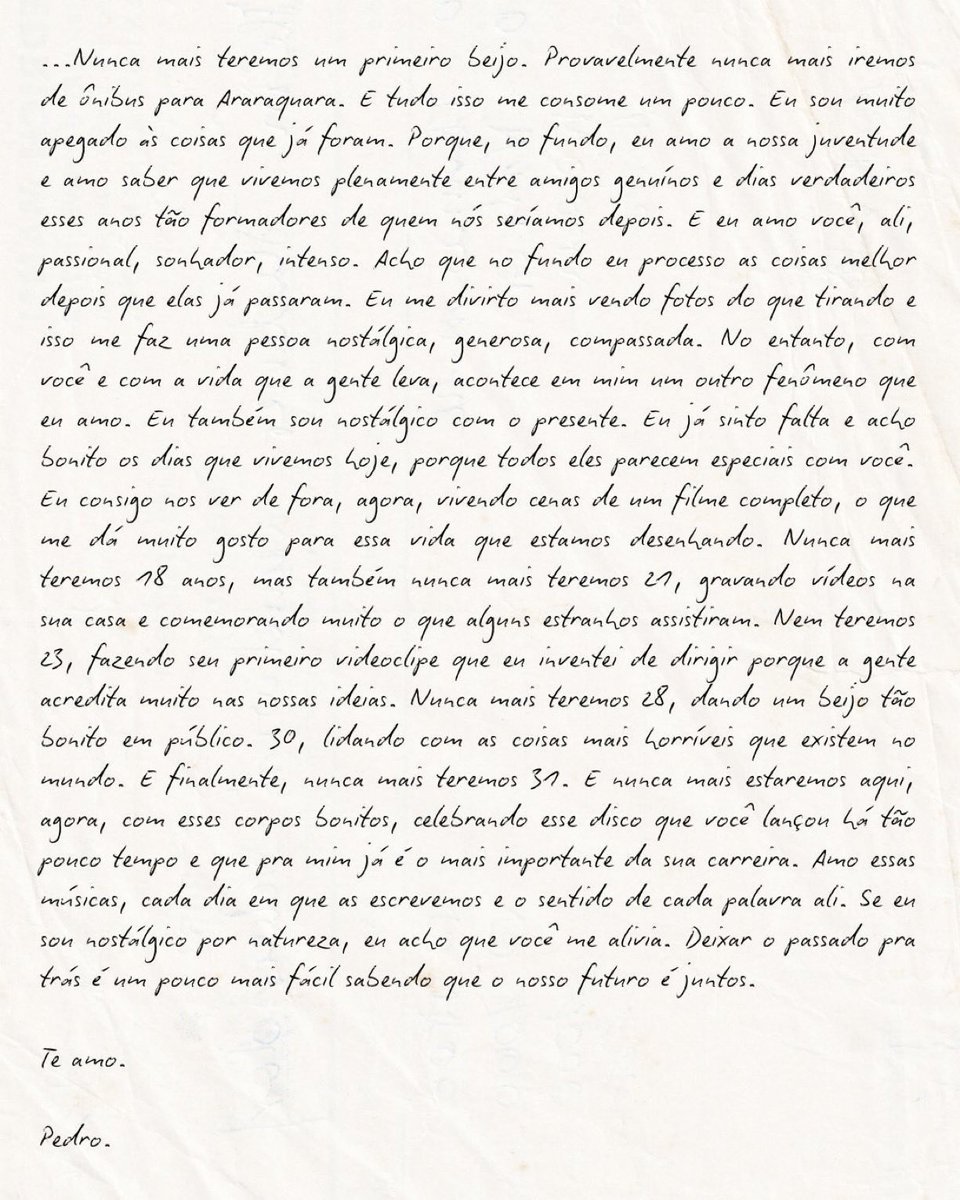 ...Nunca mais teremos um primeiro beijo. Provavelmente nunca mais iremos
de ônibus para Araraquara. E tudo isso me consome um pouco. Eu sou muito
apegado às coisas que já foram. Porque, no fundo, eu amo a nossa juventude
e amo saber que vivemos plenamente entre amigos genuínos e dias verdadeiros
esses anos tão formadores de quem nós seríamos depois. E eu amo você, ali,
passional, sonhador, intenso. Acho que no fundo eu processo as coisas melhor
depois que elas já passaram. Eu me divirto mais vendo fotos do que tirando e
isso me faz uma pessoa nostálgica, generosa, compassada. No entanto, com
você e com a vida que a gente leva, acontece em mim um outro fenômeno que
eu amo. Eu também sou nostálgico com o presente. Eu já sinto falta e acho
bonito os dias que vivemos hoje, porque todos eles parecem especiais com você.
Eu consigo nos ver de fora, agora, vivendo cenas de um filme completo, o que
me dá muito gosto para essa vida que estamos desenhando. Nunca mais
teremos 18 anos, mas também nunca mais teremos 21, gravando vídeos na
sua casa e comemorando muito o que alguns estranhos assistiram. Nem teremos
23, fazendo seu primeiro videoclipe que eu inventei de dirigir porque a gente
acredita muito nas nossas ideias. Nunca mais teremos 28, dando um beijo tão
bonito em público. 30, lidando com as coisas mais horríveis que existem no
mundo. E finalmente, nunca mais teremos 31. E nunca mais estaremos aqui,
agora, com esses corpos bonitos, celebrando esse disco que você lançou há tão
pouco tempo e que pra mim já é o mais importante da sua carreira. Amo essas
músicas, cada dia em que as escrevemos e o sentido de cada palavra ali. Se eu
sou nostálgico por natureza, eu acho que você me alivia. Deixar o passado pra
trás é um pouco mais fácil sabendo que o nosso futuro é juntos.
Te amo.
Pedro.